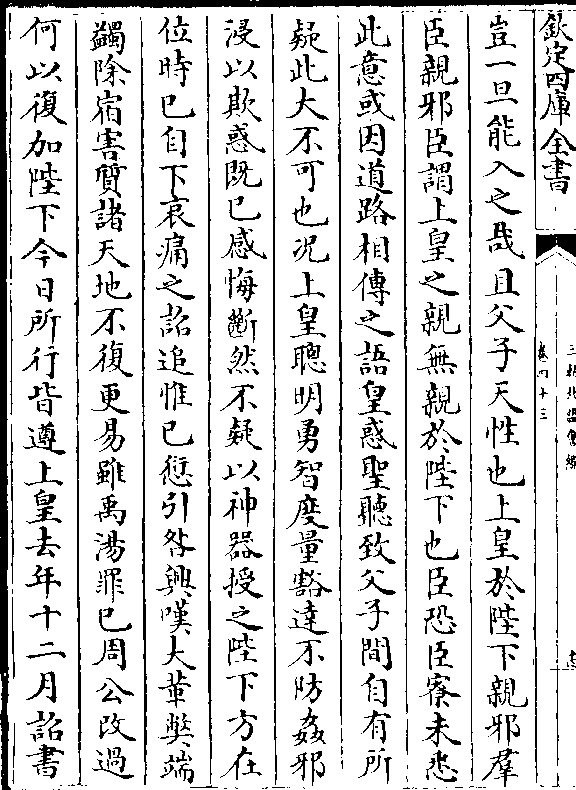 欽定四庫全書
三朝北盟會編
卷四十三
豈一旦能入之哉且父子天性也上皇於陛下親邪羣
臣親邪臣謂上皇之親無親於陛下也臣恐臣寮未悉
此意或因道路相傳之語皇惑聖聽致父子間自有所
疑此大不可也况上皇聰明勇智度量豁達不防姦邪
浸以欺惑既已感悔斷然不疑以神器授之陛下方在
位時已自下哀痛之詔追惟已愆引咎興嘆大革弊端
蠲除宿害質諸天地不復更易雖禹湯罪已周公改過
何以復加陛下今日所行皆遵上皇去年十二月詔書